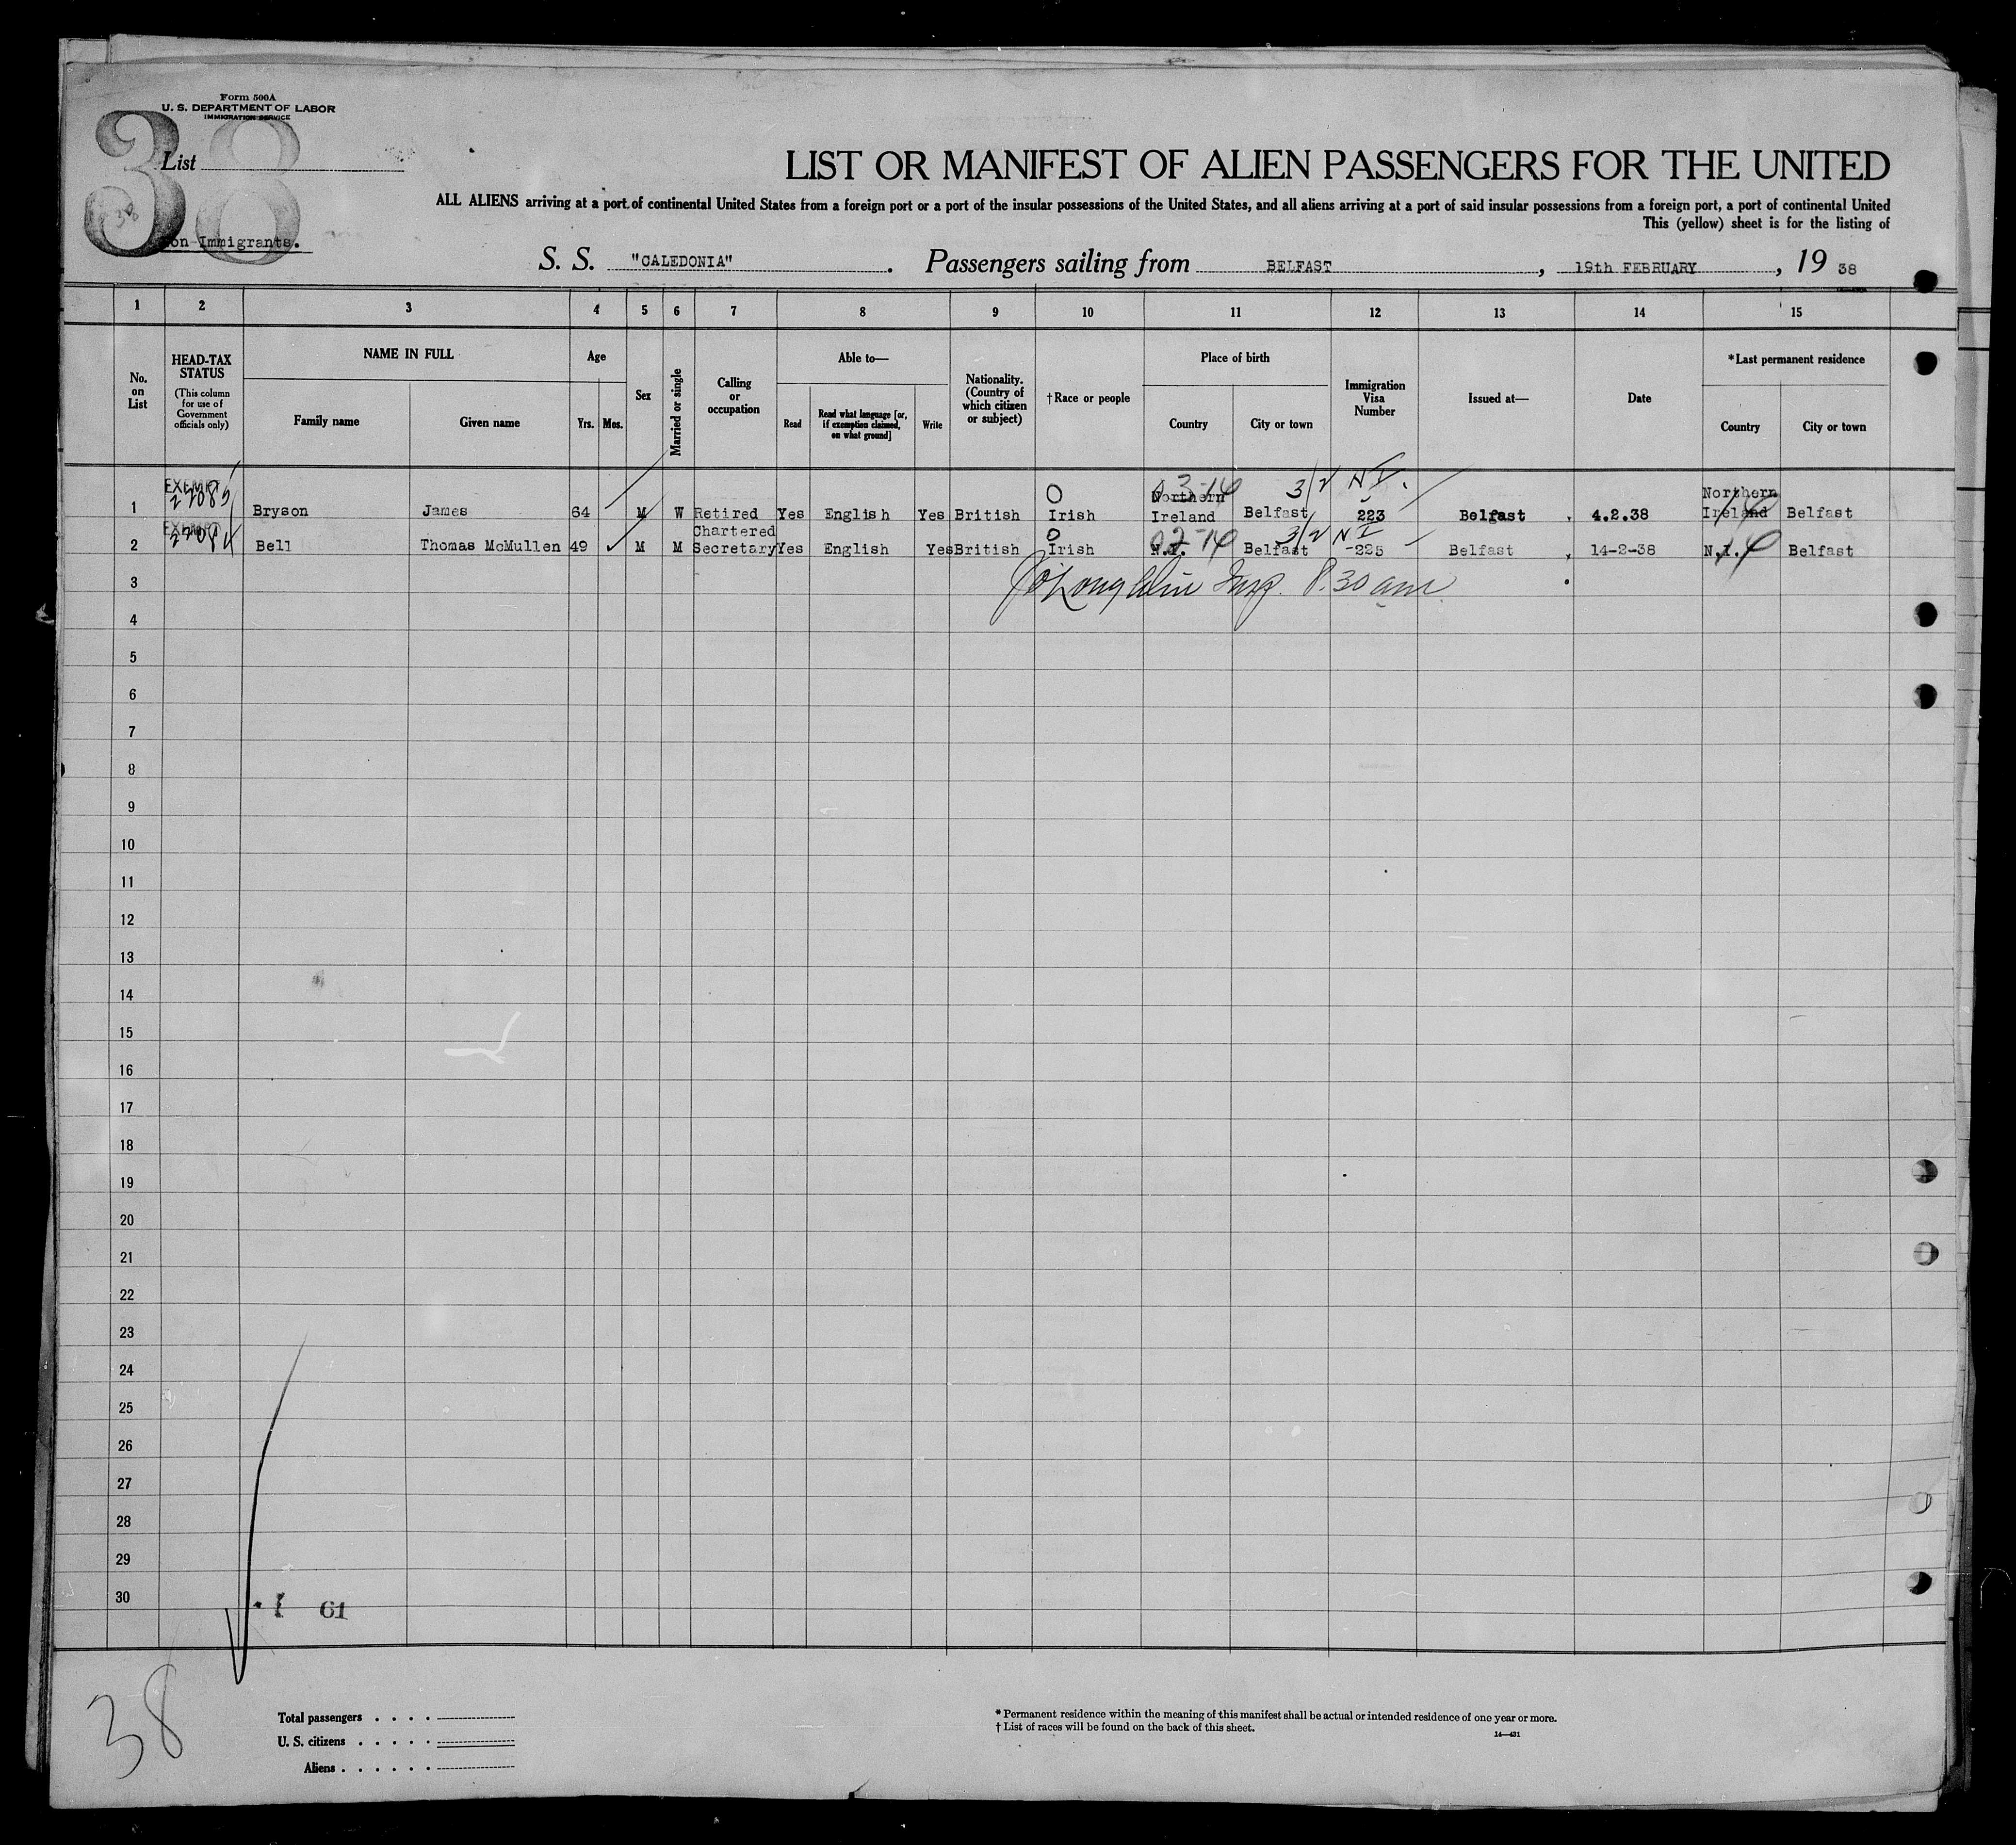 Form 500A
U. S. DEPARTMENT OF LABOR
IMMIGRATION SERVICE
38
List
38
Non-Immigrants.
LIST OR MANIFEST OF ALIEN PASSENGERS FOR THE UNITED
ALL ALIENS arriving at a port of continental United States from a foreign port or a port of the insular possessions of the United States, and all aliens arriving at a port of said insular possessions from a foreign port, a port of continental United
This (yellow) sheet is for the listing of
S. S. "CALEDONIA". Passengers sailing from BELFAST, 19th FEBRUARY, 19 38
1 2 3 4 5 6 7 8 9 10 11 12 13 14 15
No. on List
HEAD-TAX STATUS
(This column for use of Government officials only)
NAME IN FULL
Family name Given name
Age
Yrs. Mos.
Sex
Married or single
Calling or occupation
Able to—
Read Read what language [or, if exemption claimed, on what ground] Write
Nationality. (Country of which citizen or subject)
†Race or people
Place of birth
Country City or town
Immigration Visa Number
Issued at—
Date
*Last permanent residence
Country City or town
EXEMPT 0 3-14 3/2 N I. Northern
1 Bryson James 64 M W Retired Yes English Yes British Irish Northern Ireland Belfast 223 Belfast, 4.2.38 Ireland Belfast
EXEMPT Chartered 0 3/2 N I
2 Bell Thomas McMullen 49 M M Secretary Yes English Yes British Irish N.I. Belfast -225 Belfast, 14-2-38 N.I. Belfast
3 O'Loughlin Insp. 8.30 am
4
5
6
7
8
9
10
11
12
13
14
15
16
17
18
19
20
21
22
23
24
25
26
27
28
29
30
61
38
Total passengers . . . .
U. S. citizens . . . . .
Aliens . . . . . .
* Permanent residence within the meaning of this manifest shall be actual or intended residence of one year or more.
† List of races will be found on the back of this sheet.
14—431